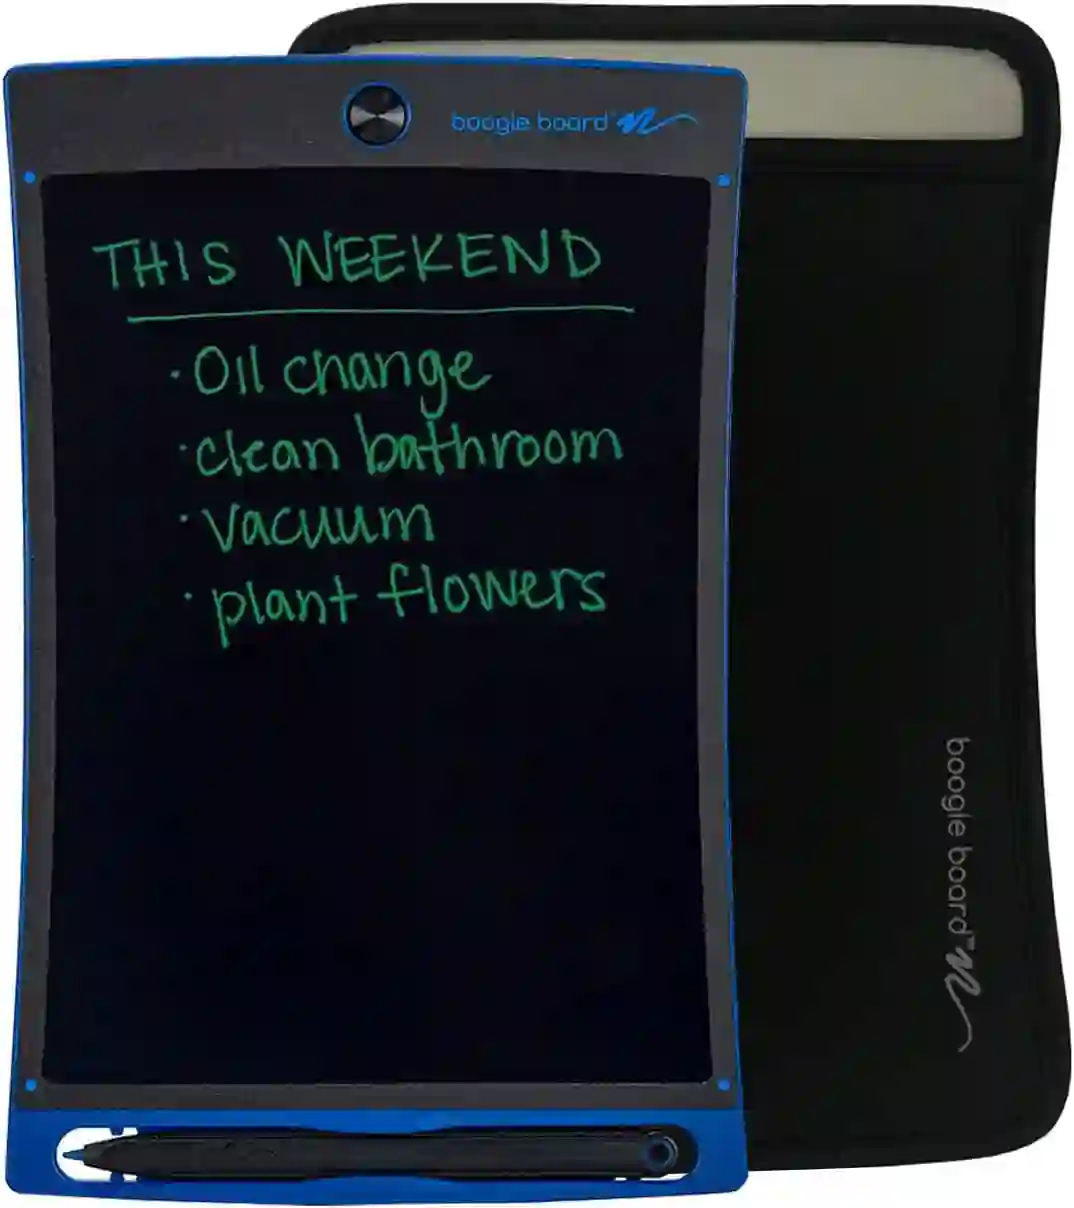 boogie board
THIS WEEKEND
· Oil change
· clean bathroom
· vacuum
· plant flowers
boogie board™